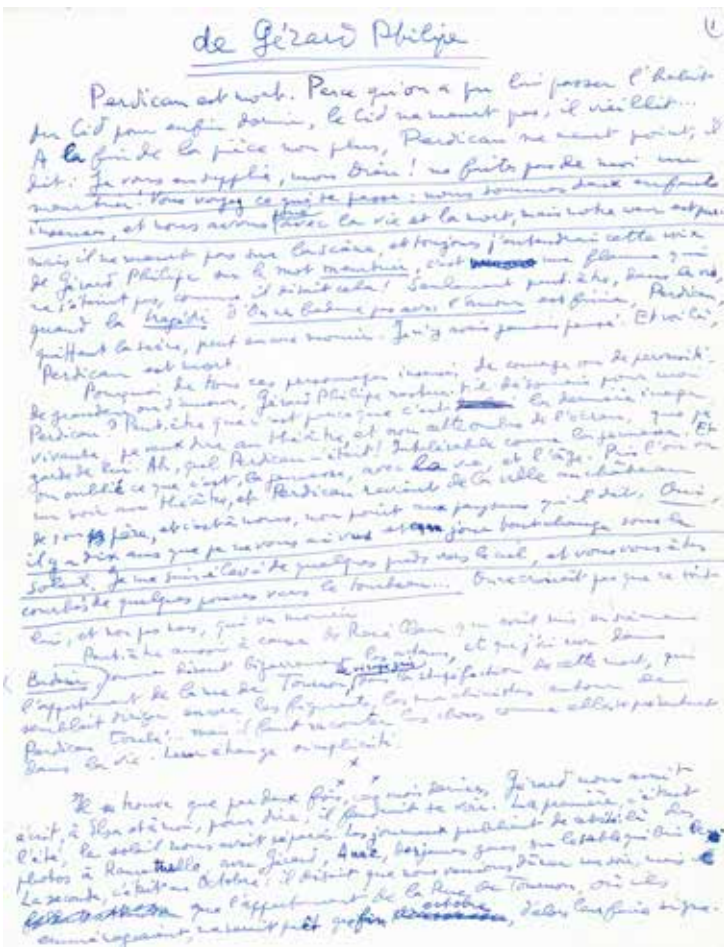 de Gérard Philipe
Perdican est mort. Parce qu'on a pu lui passer l'habit
du Cid pour enfin dormir, le Cid ne meurt pas, il vieillit...
A la fin de la pièce non plus, Perdican ne meurt point, il
dit: Je vous en supplie, mon Dieu! ne faites pas de moi un
meurtrier! Vous voyez ce qui se passe: nous sommes deux enfants
insensés, et nous avons joué avec la vie et la mort, mais notre cœur est pur
mais il ne meurt pas sur la scène, et toujours j'entendrai cette voix
de Gérard Philipe sur le mot meurtrier, c'est une flamme qui
ne s'éteint pas, comme il disait cela! Seulement peut-être, dans la vie
quand la tragédie d'On ne badine pas avec l'amour est finie, Perdican,
quittant la scène, peut encore mourir. Je n'y avais jamais pensé. Et voilà,
Perdican est mort.
Pourquoi de tous ces personnages insensés de courage ou de perversité
de grandeur ou d'amour, Gérard Philipe restera-t-il désormais pour moi
Perdican? Peut-être que c'est parce que c'est la dernière image
vivante, je veux dire au théâtre, et non cette ombre de l'écran, que je
garde de lui. Ah, quel Perdican c'était! Intolérable comme la jeunesse. Et
on oublie ce que c'est, la jeunesse, avec la vie et l'âge. Puis l'on va
un soir au théâtre, et Perdican revient de la ville au château
de son père, et c'est à nous, non point aux paysans qu'il dit: Oui,
il y a dix ans que je ne vous ai vus et en un jour tout change sous le
soleil. Je me suis élevé de quelques pieds vers le ciel, et vous vous êtes
courbés de quelques pouces vers le tombeau... On ne croirait pas que ce soit
lui, et non pas nous, qui va mourir.
Peut-être aussi à cause de René Clair qui avait mis en scène
Badine, comme disent bizarrement les acteurs, et que j'ai vu dans
l'appartement de la rue de Tournon, le visage dans la stupéfaction de cette mort, qui
semblait diriger encore les figurants, les machinistes autour de
Perdican touché... mais il faut raconter les choses comme elles se présentent
dans la vie. Leur étrange simplicité.
x x x
Il se trouve que par deux fois, ces mois derniers, Gérard nous avait
écrit à Elsa et à moi, pour dire: il faudrait se voir. La première, c'était
l'été, le soleil nous avait séparés. Les journaux publiaient des
photos à Ramatuelle, avec Gérard, Anne, les jeunes gens, sur le sable
La seconde, c'était en Octobre: il disait que nous viendrions dîner un soir, mais
que l'appartement de la Rue de Tournon, où ils
emménageaient, ne serait prêt que fin octobre, alors il nous ferait signe.